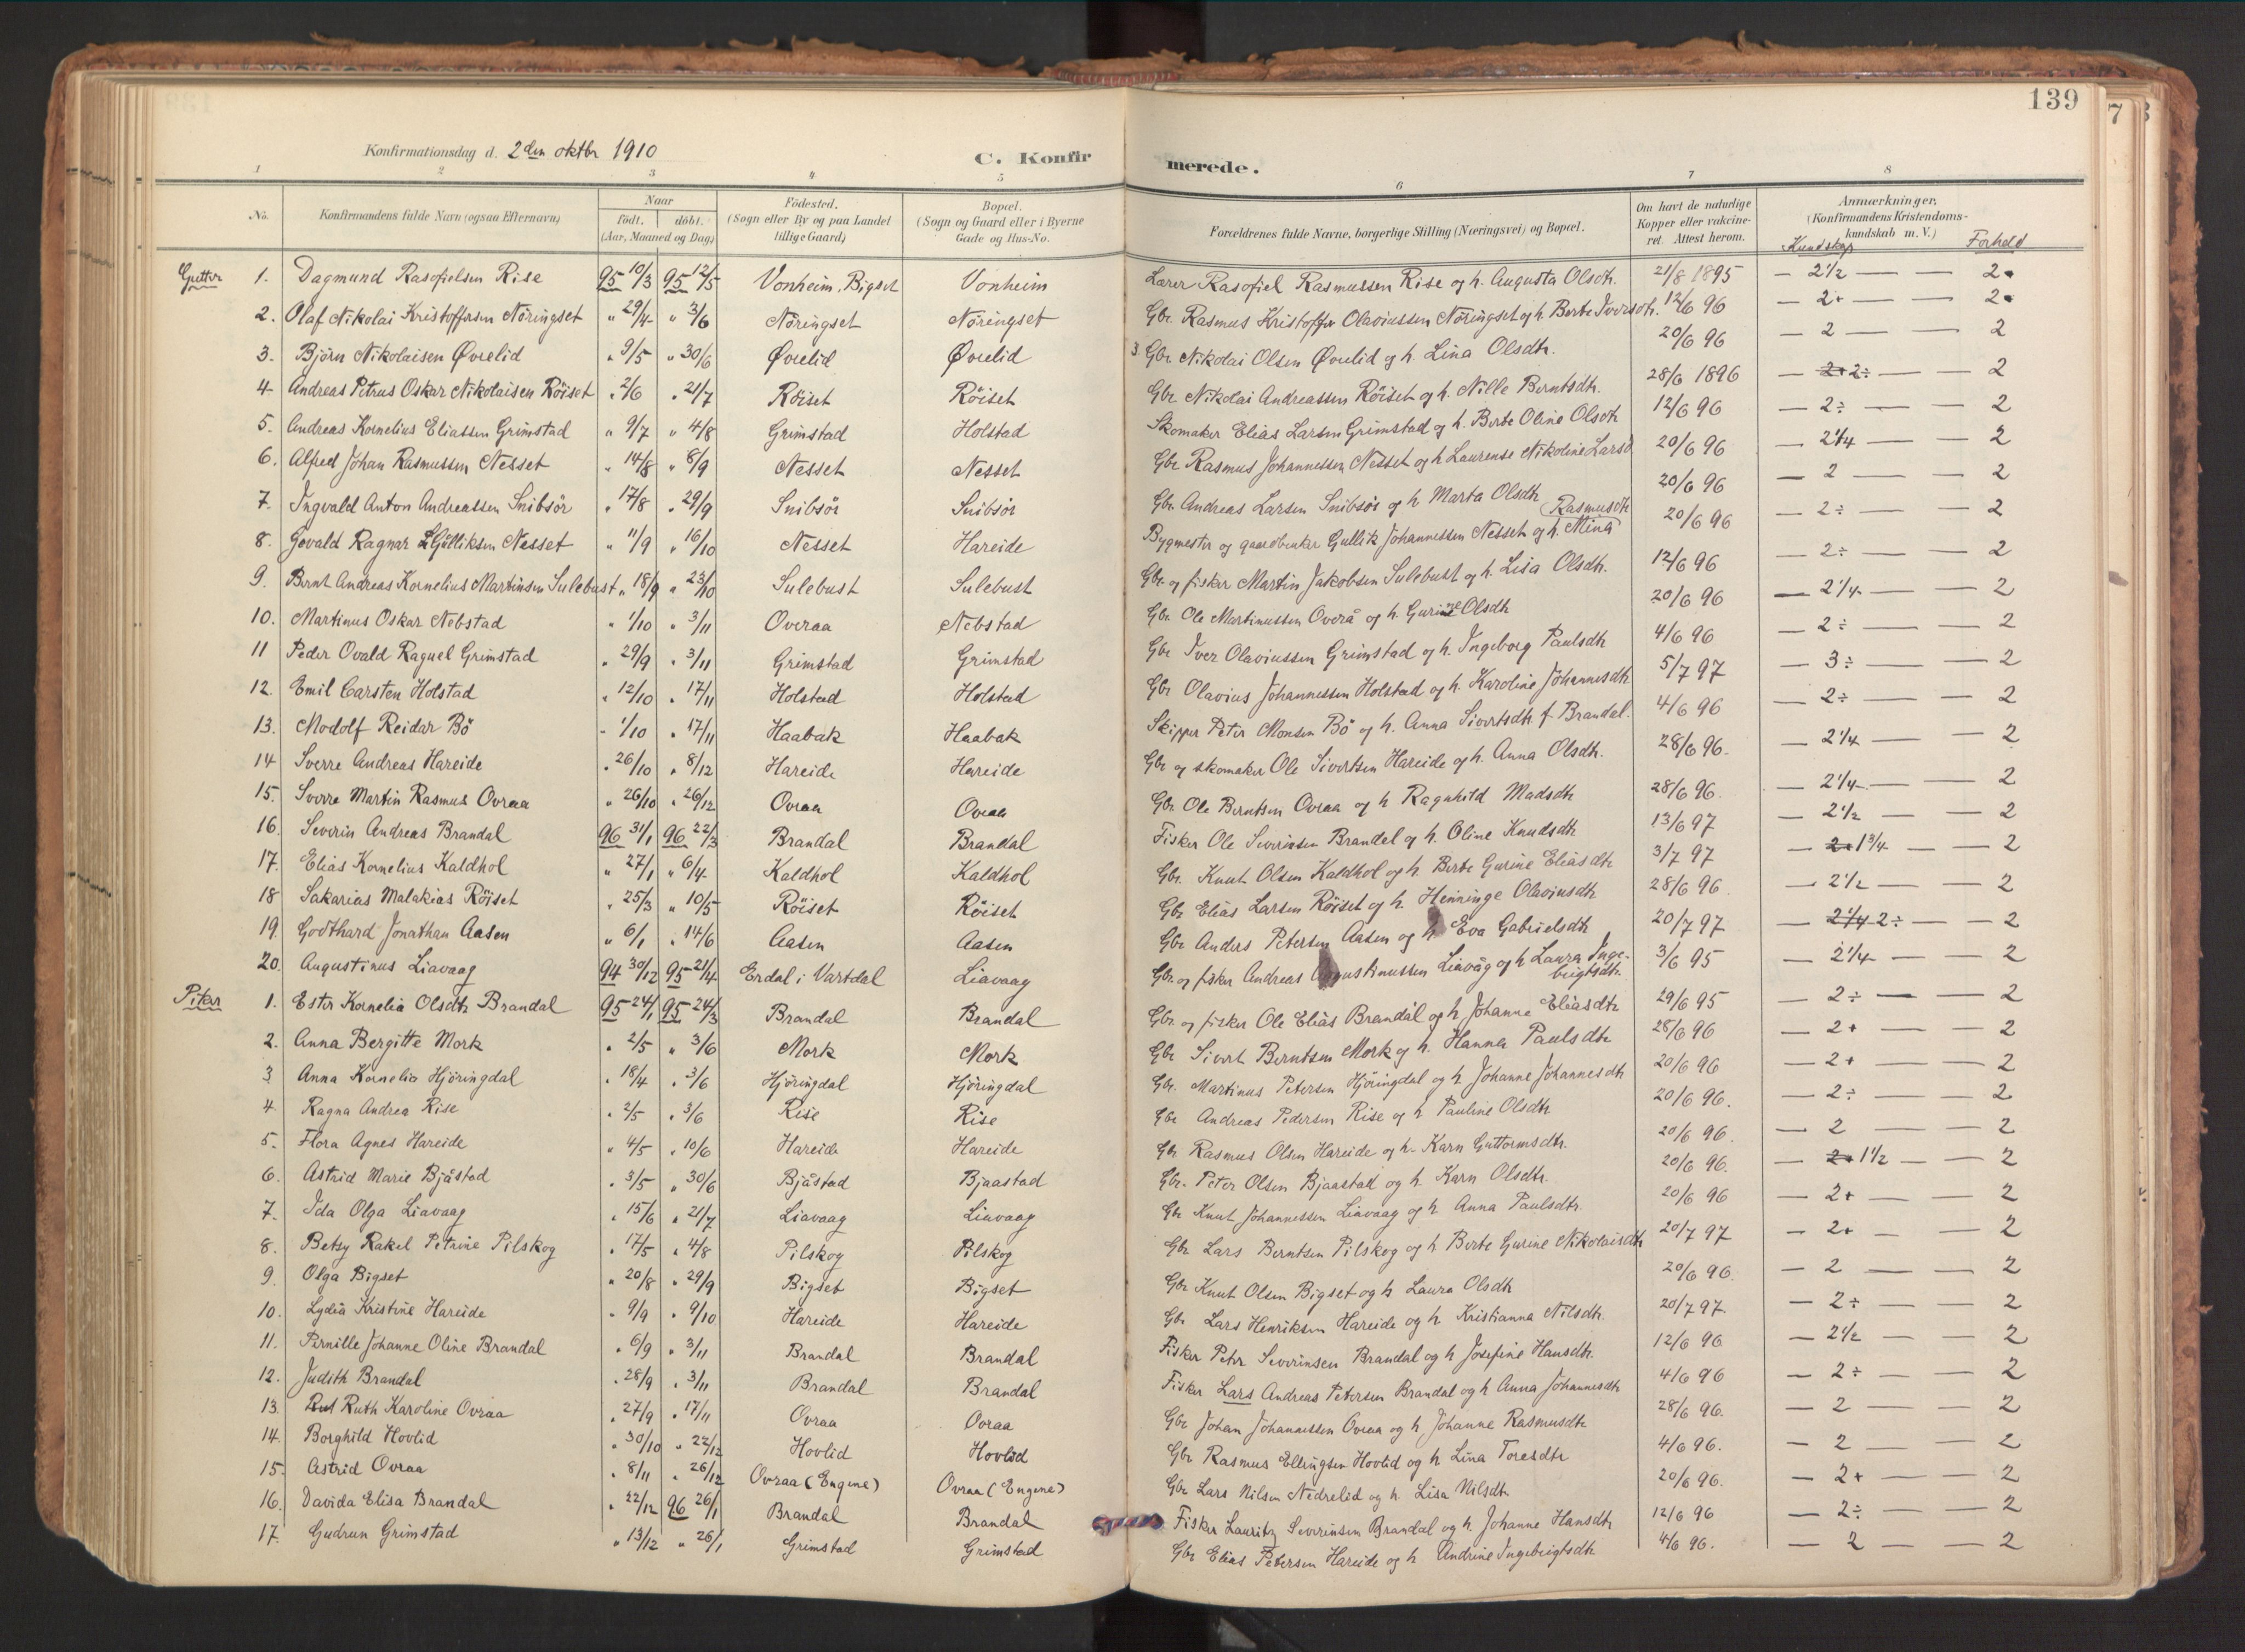 139
Konfirmationsdag d. 2den oktbr 1910 C. Konfirmerede.
1 2 3 4 5 6 7 8
No. Konfirmandens fulde Navn (ogsaa Efternavn) Naar født, døbt. (Aar, Maaned og Dag) Fødested. (Sogn eller By og paa Landet tillige Gaard) Bopæl. (Sogn og Gaard eller i Byerne Gade og Hus-No. Forældrenes fulde Navne, borgerlige Stilling (Næringsvei) og Bopæl. Om havt de naturlige Kopper eller vakcineret. Attest herom. Anmærkninger. (Konfirmandens Kristendomskundskab m. V.) Kundskap Forhold
Gutter 1. Dagmund Rasofielsen Rise 95 10/3 95 12/5 Vonheim, Bigset Vonheim Lærer Rasofiel Rasmussen Rise og h. Augusta Olsdtr. 21/8 1895 — 2 1/2 — — 2
2. Olaf Nikolai Kristoffersen Nöringset " 29/4 " 3/6 Nöringset Nöringset Gbr. Rasmus Kristoffer Olaviussen Nöringset og h. Berte Iversdtr. 12/6 96 — 2+ — — 2
3. Björn Nikolaisen Øvrelid " 9/5 " 30/6 Øvrelid Øvrelid 3 Gbr. Nikolai Olsen Øvrelid og h. Lina Olsdtr. 20/6 96 — 2 — — 2
4. Andreas Petrus Oskar Nikolaisen Röiset " 2/6 " 21/7 Röiset Röiset Gbr. Nikolai Andreassen Röiset og h. Nille Berntsdtr. 28/6 1896 — 2+ 2÷ — — 2
5. Andreas Kornelius Eliassen Grimstad " 9/7 " 4/8 Grimstad Holstad Skomaker Elias Larsen Grimstad og h. Berte Oline Olsdtr 12/6 96 — 2÷ — — 2
6. Alfred Johan Rasmussen Nesset " 14/8 " 8/9 Nesset Nesset Gbr Rasmus Johannessen Nesset og h Laurense Nikoline Larsd. 20/6 96 — 2 1/4 — — 2
7. Ingvald Anton Andreassen Snibsör " 17/8 " 29/9 Snibsör Snibsör Gbr. Andreas Larsen Snibsör og h Marta Olsdtr 20/6 96 — 2 — — 2
8. Govald Ragnar Gulliksen Nesset " 11/9 " 16/10 Nesset Hareide Bygmester og gaardbruker Gullik Johannessen Nesset og h. Mina (Rasmusdtr 20/6 96 — 2÷ — — 2
9. Bernt Andreas Kornelius Martinsen Sulebust " 18/9 " 23/10 Sulebust Sulebust Gbr. og fisker Martin Jakobsen Sulebust og h. Lisa Olsdtr. 12/6 96 — 2÷ — — 2
10. Martinus Oskar Nebstad " 1/10 " 3/11 Overaa Nebstad Gbr. Ole Martinussen Overå og h. Gurine Olsdtr 20/6 96 — 2 1/4 — — 2
11 Peder Ovald Raguel Grimstad " 29/9 " 3/11 Grimstad Grimstad Gbr Iver Olaviussen Grimstad og h. Ingeborg Paulsdtr 4/6 96 — 2÷ — — 2
12. Emil Carsten Holstad " 12/10 " 17/11 Holstad Holstad Gbr Olavius Johannessen Holstad og h. Karoline Johannesdtr 5/7 97 — 3÷ — — 2
13. Modolf Reidar Bö " 1/10 " 17/11 Haabak Haabak Skipper Peter Monsen Bö og h. Anna Sivertsdtr f. Brandal. 4/6 96 — 2÷ — — 2
14 Sverre Andreas Hareide " 26/10 " 8/12 Hareide Hareide Gbr og skomaker Ole Sivertsen Hareide og h. Anna Olsdtr. 28/6 96. — 2 1/4 — — 2
15. Sverre Martin Rasmus Ovraa " 26/10 " 26/12 Ovraa Ovraa Gbr. Ole Berntsen Ovraa og h Ragnhild Madsdtr 28/6 96. — 2 1/4 — — 2
16. Severin Andreas Brandal 96 31/1 96 22/3 Brandal Brandal Fisker Ole Severinsen Brandal og h. Oline Knudsdtr 13/6 97 — 2 1/2 — — 2
17. Elias Kornelius Kaldhol " 27/1 " 6/4 Kaldhol Kaldhol Gbr. Knut Olsen Kaldhol og h. Berte Gurine Eliasdtr 3/7 97 — 2+ 1 3/4 — — 2
18 Sakarias Malakias Röiset " 25/3 " 10/5 Röiset Röiset Gbr Elias Larsen Röiset og h. Henninge Olaviusdtr 28/6 96. — 2 1/2 — — 2
19. Godthard Jonathan Aasen " 6/1 " 14/6 Aasen Aasen Gbr Anders Petersen Aasen og h Eva Gabrielsdtr 20/7 97 — 2 1/4 2÷ — — 2
20. Augustinus Liavaag 94 30/12 95 21/4 Erdal i Vartdal Liavaag Gbr. og fisker Andreas Augustinussen Liavåg og h Laura Ingebrigtsdtr. 3/6 95 — 2 1/4 — — 2
Piker 1. Ester Kornelia Olsdtr Brandal 95 24/1 95 24/3 Brandal Brandal Gbr og fisker Ole Elias Brandal og h Johanne Eliasdtr 29/6 95 — 2÷ — — 2
2. Anna Bergitte Mork " 2/5 " 3/6 Mork Mork Gbr Sivert Berntsen Mork og h. Hanna Paulsdtr 28/6 96 — 2+ — — 2
3 Anna Kornelia Hjöringdal " 18/4 " 3/6 Hjöringdal Hjöringdal Gbr. Martinus Petersen Hjöringdal og h Johanne Johannesdtr 20/6 96 — 2+ — — 2
4 Ragna Andrea Rise " 2/5 " 3/6 Rise Rise Gbr Andreas Pedersen Rise og h Pauline Olsdtr 20/6 96. — 2÷ — — 2
5. Flora Agnes Hareide " 4/5 " 10/6 Hareide Hareide Gbr Rasmus Olsen Hareide og h. Karn Guttormsdtr. 20/6 96. — 2 — — 2
6. Astrid Marie Bjåstad " 3/5 " 30/6 Bjåstad Bjaastad Gbr. Peter Olsen Bjaastad og h. Karn Olsdtr. 20/6 96. — 2+ 1 1/2 — — 2
7. Ida Olga Liavaag " 15/6 " 21/7 Liavaag Liavaag Gbr Knut Johannessen Liavaag og h Anna Paulsdtr. 20/6 96 — 2+ — — 2
8. Betsy Rakel Petrine Pilskog " 17/5 " 4/8 Pilskog Pilskog Gbr Lars Berntsen Pilskog og h Berte Gurine Nikolaisdtr 20/7 97 — 2+ — — 2
9. Olga Bigset " 20/8 " 29/9 Bigset Bigset Gbr Knut Olsen Bigset og h Laura Olsdtr 20/6 96. — 2 — — 2
10. Lydia Kristine Hareide " 9/9 " 9/10 Hareide Hareide Gbr Lars Henriksen Hareide og h Kristianna Nilsdtr. 20/7 97 — 2÷ — — 2
11. Pernille Johanne Oline Brandal " 6/9 " 3/11 Brandal Brandal Fisker Peter Severinsen Brandal og h Josefine Hansdtr 12/6 96 — 2 1/2 — — 2
12. Judith Brandal " 28/9 " 3/11 Brandal Brandal Fisker Lars Andreas Petersen Brandal og h Anna Johannesdtr 4/6 96 — 2÷ — — 2
13. Rut Ruth Karoline Ovraa " 27/9 " 17/11 Ovraa Ovraa Gbr Johan Johannessen Ovraa og h Johanne Rasmusdtr 28/6 96. — 2 — — 2
14. Borghild Hovlid " 30/10 " 22/12 Hovlid Hovlid Gbr Rasmus Ellingsen Hovlid og h Lina Toresdtr 4/6 96. — 2 — — 2
15. Astrid Ovraa " 8/11 " 26/12 Ovraa (Engene) Ovraa (Engene) Gbr Lars Nilsen Nedrelid og h. Lisa Nilsdtr. 20/6 96. — 2+ — — 2
16. Davida Elisa Brandal " 22/12 96 26/1 Brandal Brandal Fisker Lauritz Severinsen Brandal og h. Johanne Hansdtr 12/6 96 — 2÷ — — 2
17. Gudrun Grimstad " 13/12 " 26/1 Grimstad Grimstad Gbr Elias Petersen Hareide og h Andrine Ingebrigtsdtr 4/6 96. — 2 — — 2